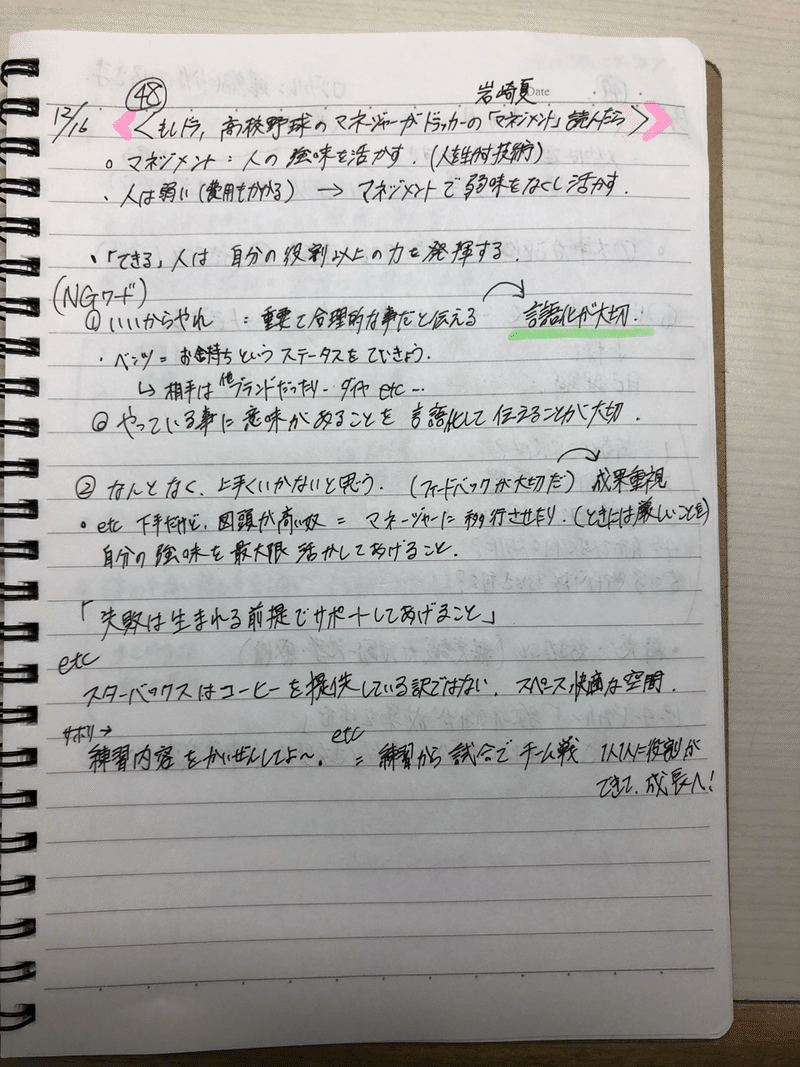 48 岩崎夏 Date
12/16 <もしドラ, 高校野球のマネジャーがドラッカーの「マネジメント」読んだら>
○ マネジメント : 人の強味を活かす. (人を生かす技術)
・ 人は弱い (費用もかかる) → マネジメントで弱味をなくし活かす.
・「できる」人は 自分の役割以上の力を発揮する.
(NGワード)
① いいからやれ : 重要で合理的な事だと伝える 言語化が大切!
・ ベンツ = お金持ちというステータスをていきょう.
↳ 相手は他ブランドだったり- ダイヤ etc …
◎ やっている事に意味があることを 言語化して伝えることが大切.
② なんとなく. 上手くいかないと思う. (フィードバックが大切だ) 成果重視
・ etc 下手だけど, 図頭が高い奴 = マネージャーに移行させたり. (ときには厳しいことを)
自分の強味を最大限活かしてあげること.
「失敗は生まれる前提でサポートしてあげること」
etc
スターバックスはコーヒーを提供している訳ではない. スペース, 快適な空間.
サボリ→
練習内容をかいぜんしてよ〜. etc = 練習から試合でチーム戦 1人1人に役割が
できて. 成長へ!